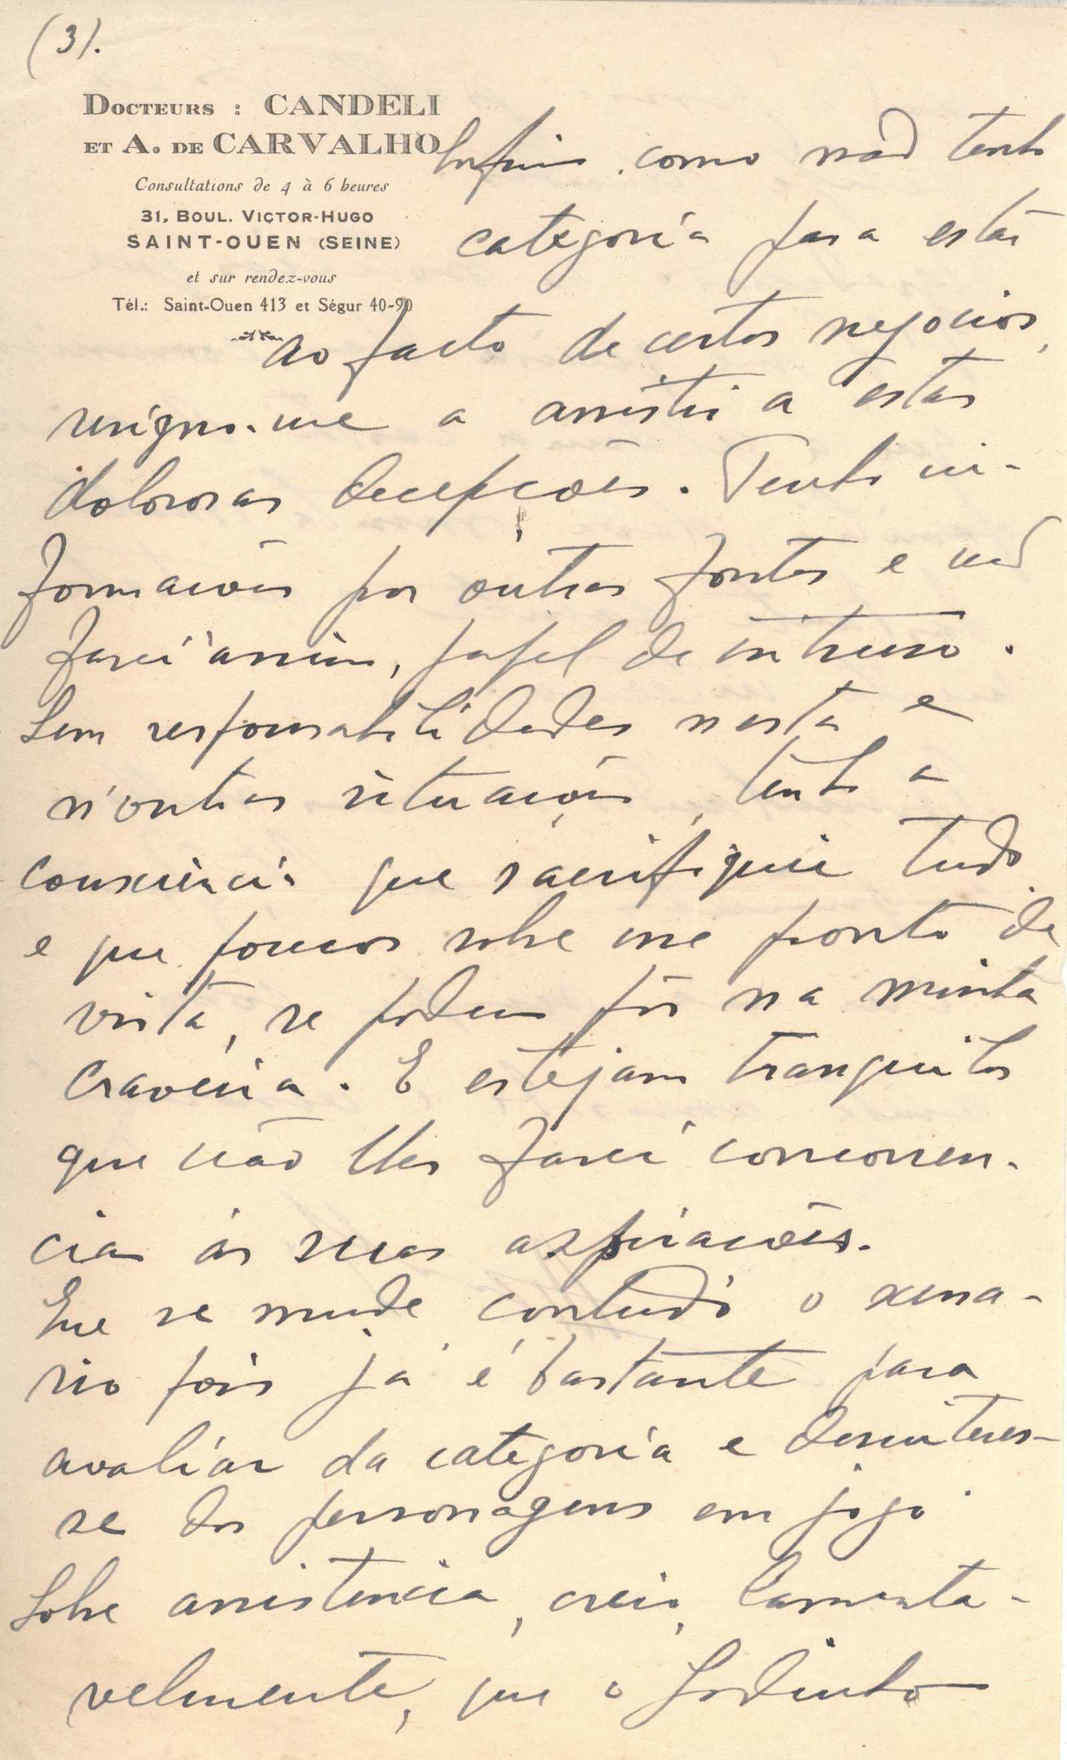 (3).
DOCTEURS : CANDELI
ET A. DE CARVALHO
Consultations de 4 à 6 heures
31, BOUL. VICTOR-HUGO
SAINT-OUEN (SEINE)
et sur rendez-vous
Tél.: Saint-Ouen 413 et Ségur 40-90
Enfim, como não tenho
categoria para estár
ao facto de certos negocios,
resigno-me a assistir a estas
dolorosas decepções. Tenho in-
formações por outras fontes e não
farei assim, papel de intruso.
Sem responsabilidades nesta e
n'outras situações, tenho a
consciencia que sacrifiquei tudo
e que poucos sobre esse ponto de
vista, se podem pôr na minha
craveira. E estejam tranquilos
que não lhes farei concorren-
cia ás suas aspirações.
Que se mude contudo o scena-
rio pois já é bastante para
avaliar da categoria e desinteres-
se dos personagens em jogo.
Sobre assistencia, creio, lamenta-
velmente, que o Godinho